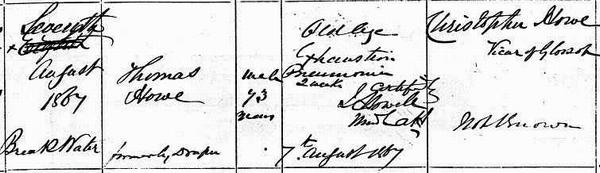 Seventh
August
1867
Break Water
Thomas
Howe
formerly Draper
Male
73
years
Old Age
Exhaustion
Pneumonia
2 weeks
Certified
J. Howell
7th August 1867
Christopher Howe
Vicar of Glossop
Not Known